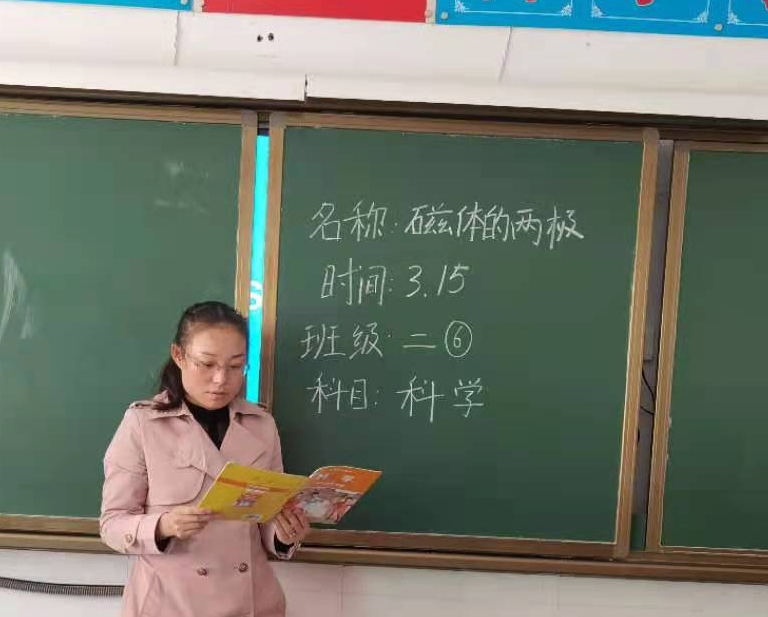 名称:磁体的两极
时间:3.15
班级:二⑥
科目:科学
S
科学